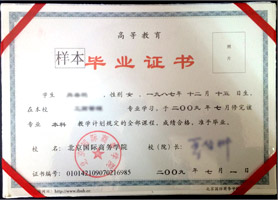 高等教育
样本
毕业证书
学生 性别 女，一九八七年 十二月 十五日生，
在本校 专业学习，于二00九年七月修完该
专业 本科 教学计划规定的全部课程，成绩合格，准予毕业。
校名：北京国际商务学院 校（院）长：
证书编号：010142109070216985 二00九年 七月 一日